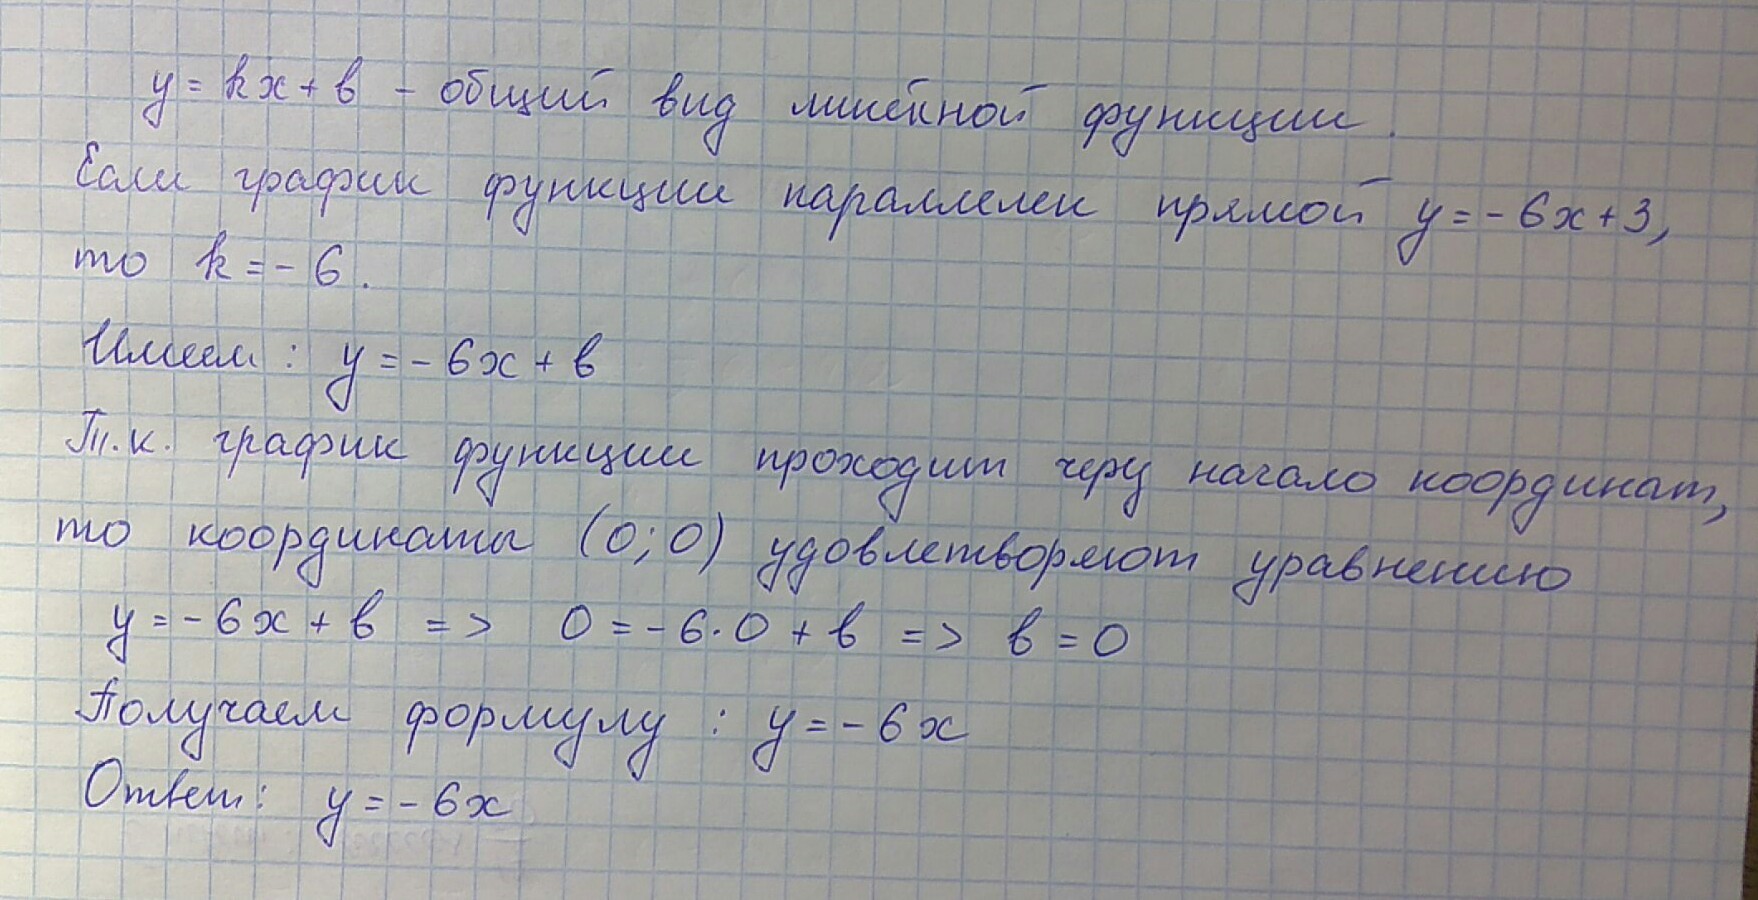 y = kx + b - общий вид линейной функции.
Если график функции параллелен прямой y = - 6x + 3,
то k = - 6.
Имеем : y = - 6x + b
Т.к. график функции проходит через начало координат,
то координаты (0; 0) удовлетворяют уравнению
y = - 6x + b => 0 = - 6 · 0 + b => b = 0
Получаем формулу : y = - 6x
Ответ: y = - 6x